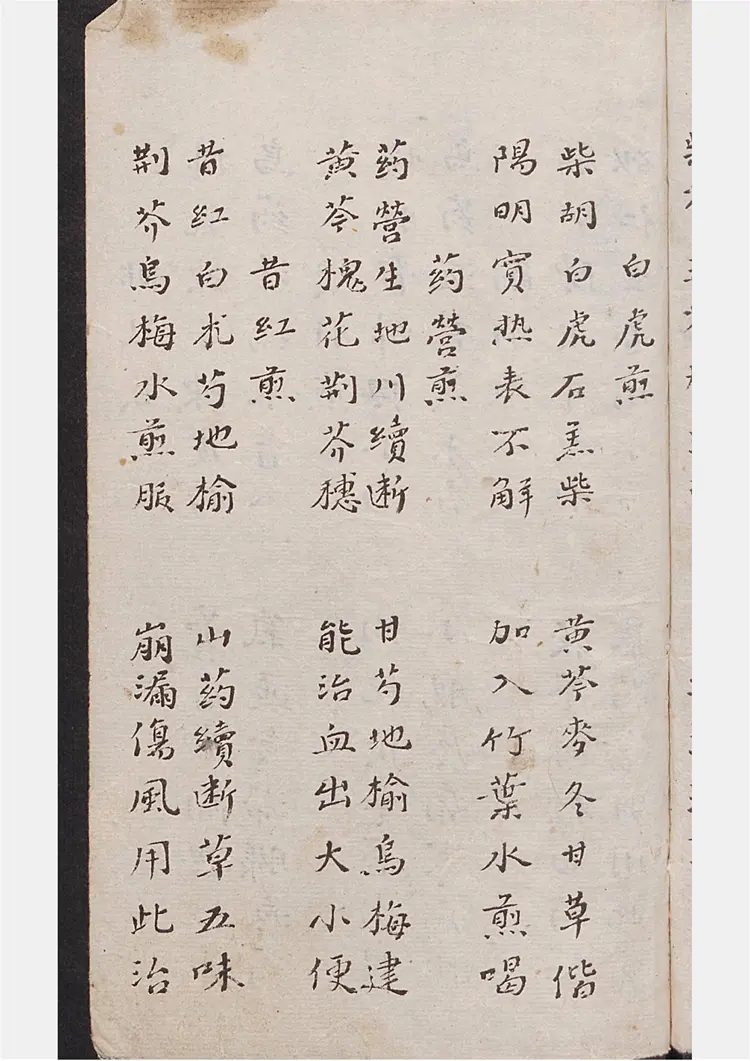 白虎煎
柴胡白虎石羔柴 黄芩麥冬甘草偕
陽明實热表不解 加入竹葉水煎喝
药營煎
药營生地川續断 甘芍地榆烏梅建
黄芩槐花荆芥穗 能治血出大小便
昔紅煎
昔紅白朮芍地榆 山药續断草五味
荆芥烏梅水煎服 崩漏傷風用此治